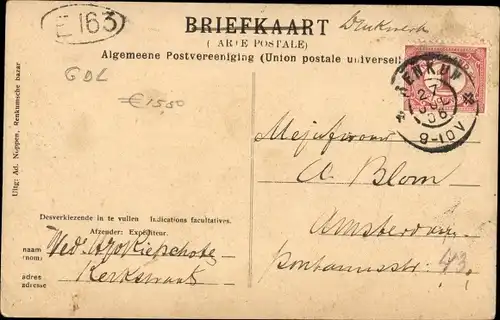 E 163
BRIEFKAART
(CARTE POSTALE)
Drukwerk
Algemeene Postvereeniging (Union postale universelle)
GDL
€15,50
RENKUM
27
06
8-10V
Mejufvrouw
A Blom
Amsterdam
Pontanusstr: 43.
Uitg: Ad. Noppen, Renkumsche bazar
Desverkiezende in te vullen Indications facultatives.
Afzender: Expéditeur.
naam (nom) Wed.
adres adresse Kerkstraat